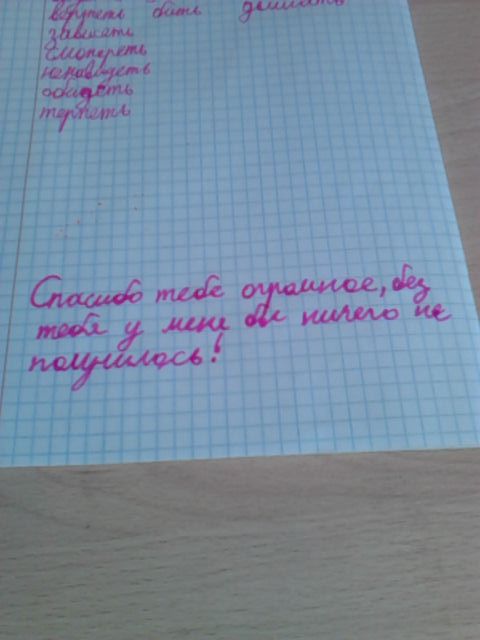 вертеть быть дышать
зависеть
смотереть
ненавидеть
обидеть
терпеть
Спасибо тебе огромное, без
тебя у мене бы ничего не
получилось!